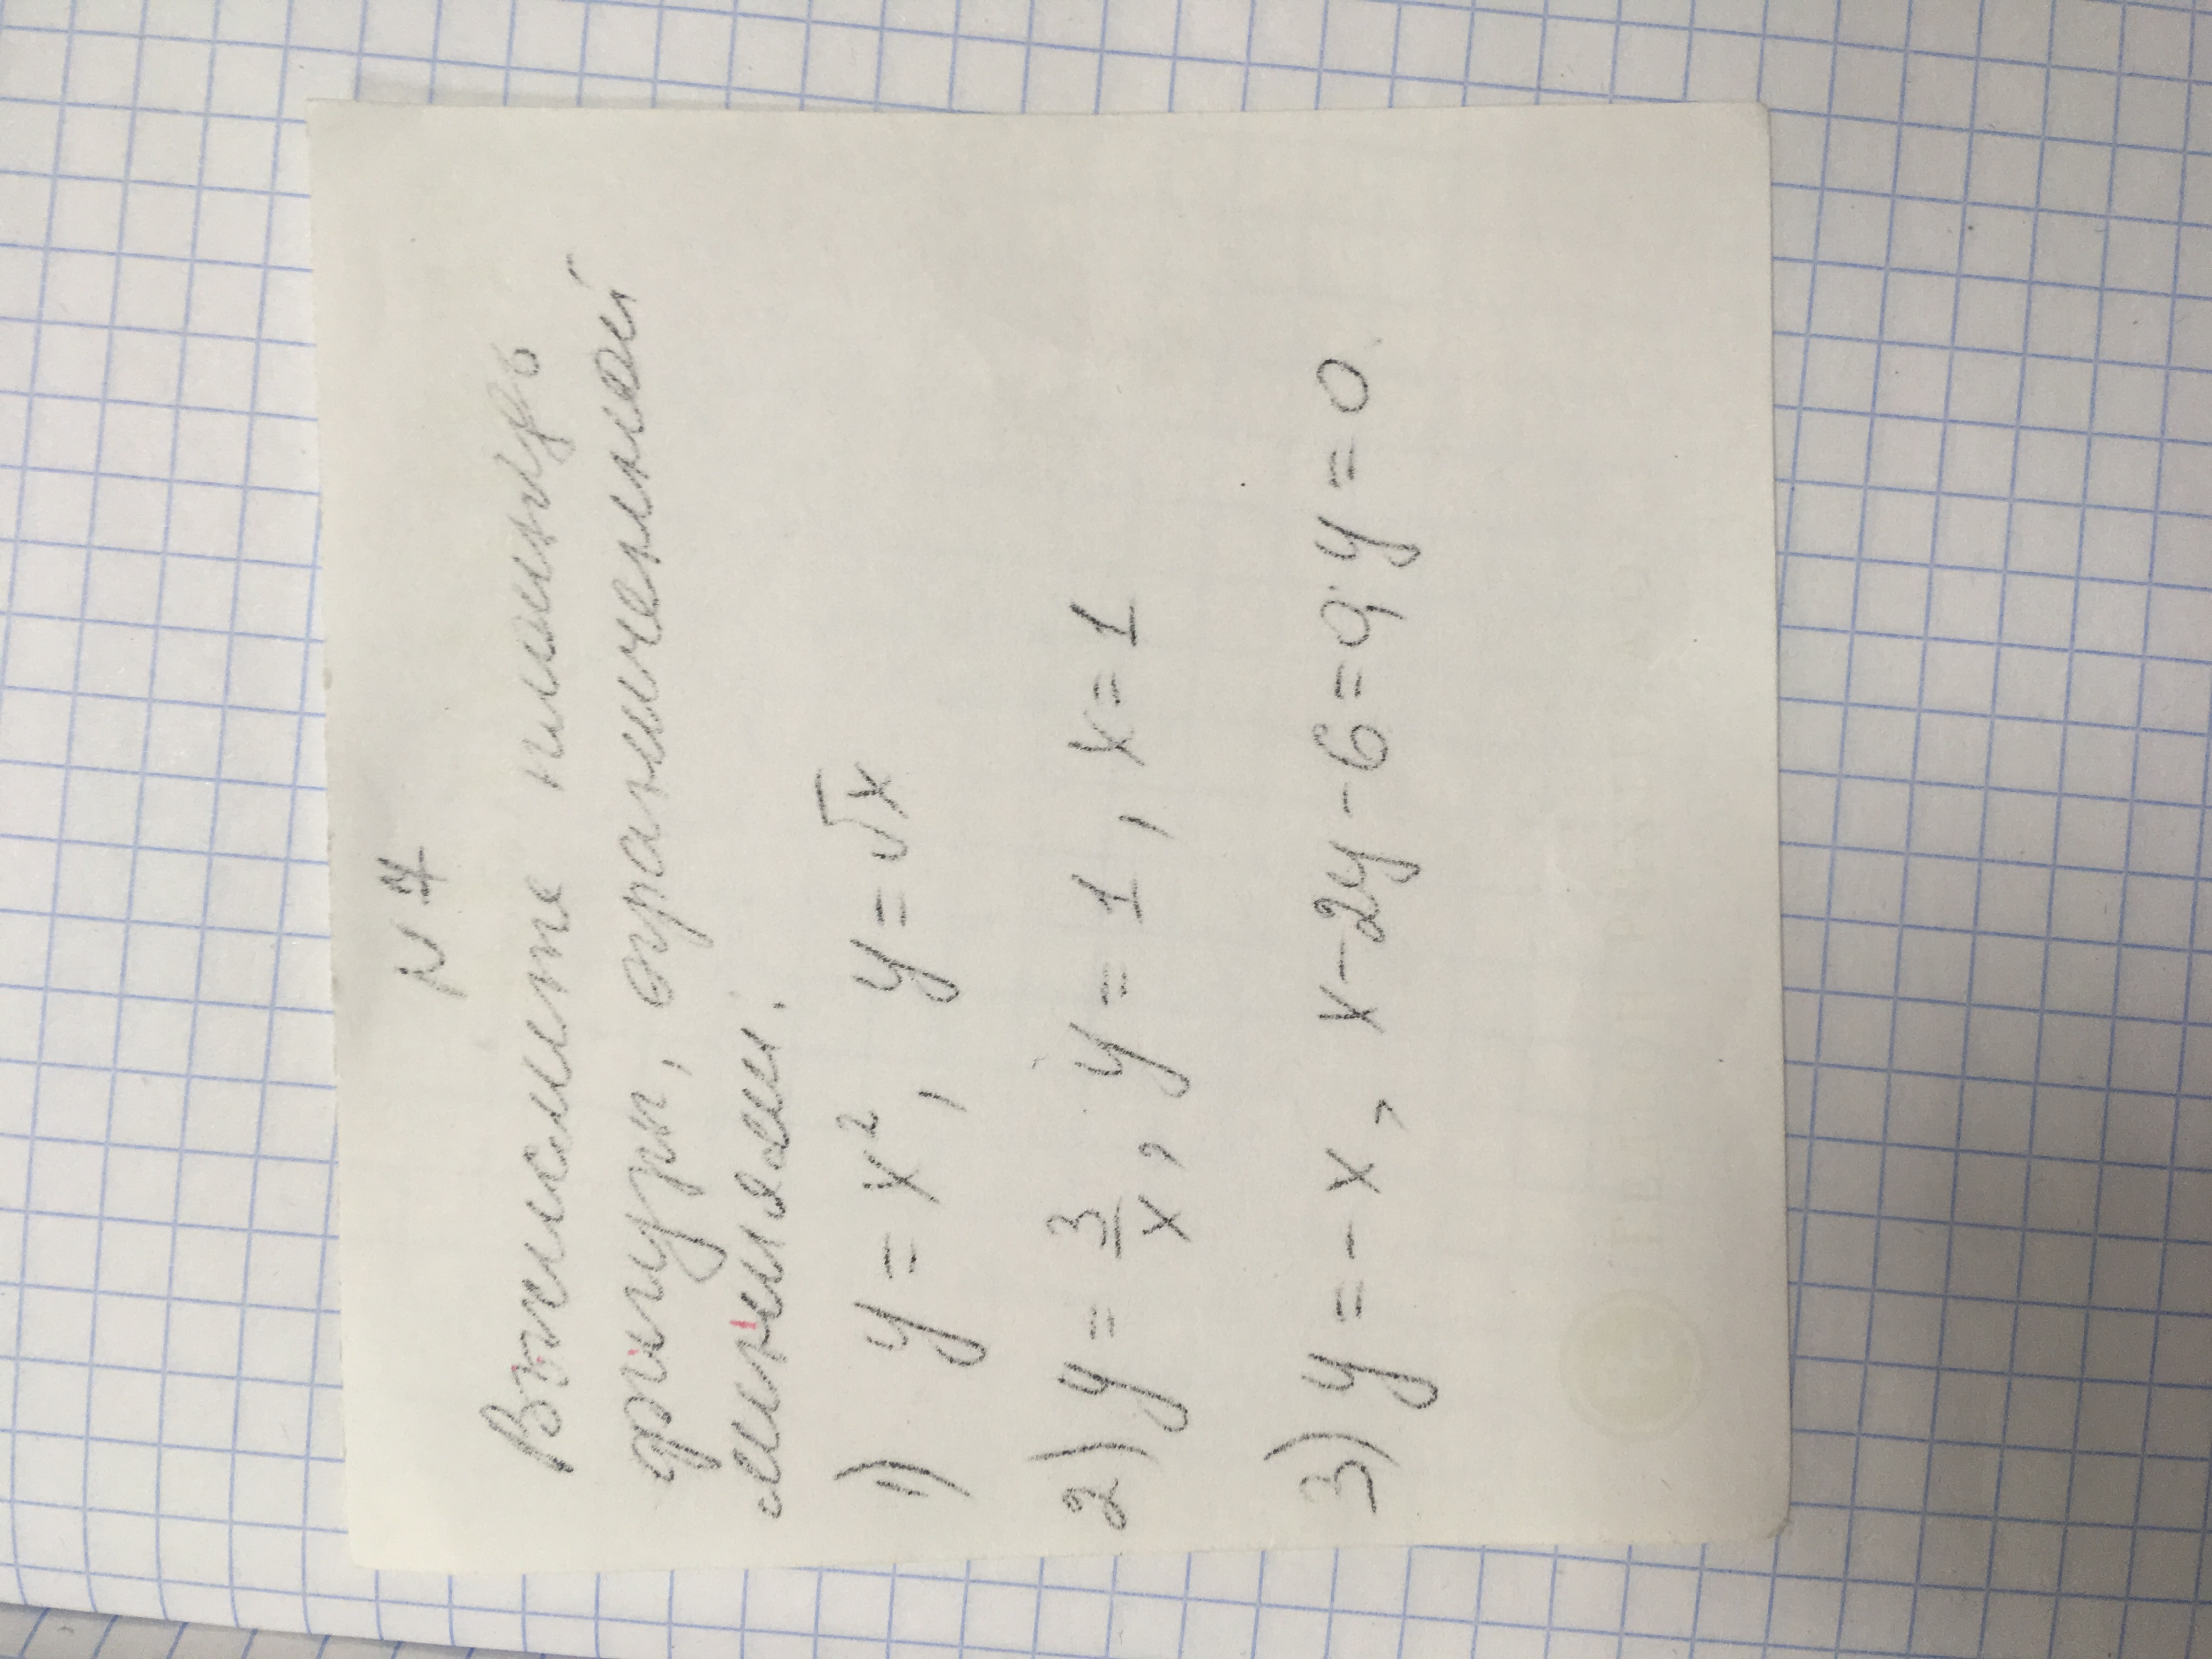 N 7
Вычислите площадь
фигуры, ограниченной
линиями.
1) y = x², y = √x
2) y = 3/x, y = 1, x = 1
3) y = - x, x - 2y - 6 = 0, y = 0